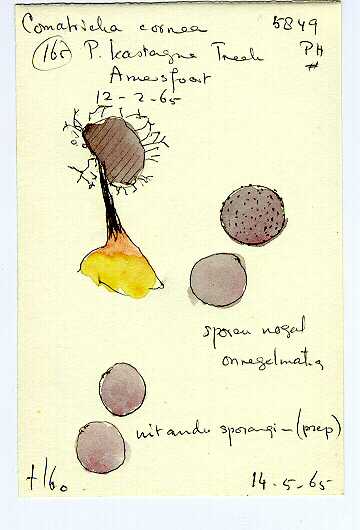 Comatricha cornea 5849
(16c) P. Kastagne Treek PH
Amersfoort #
12-2-65
sporen nogal
onregelmatig
uit andu sporangiën (prep)
+160
14-5-65